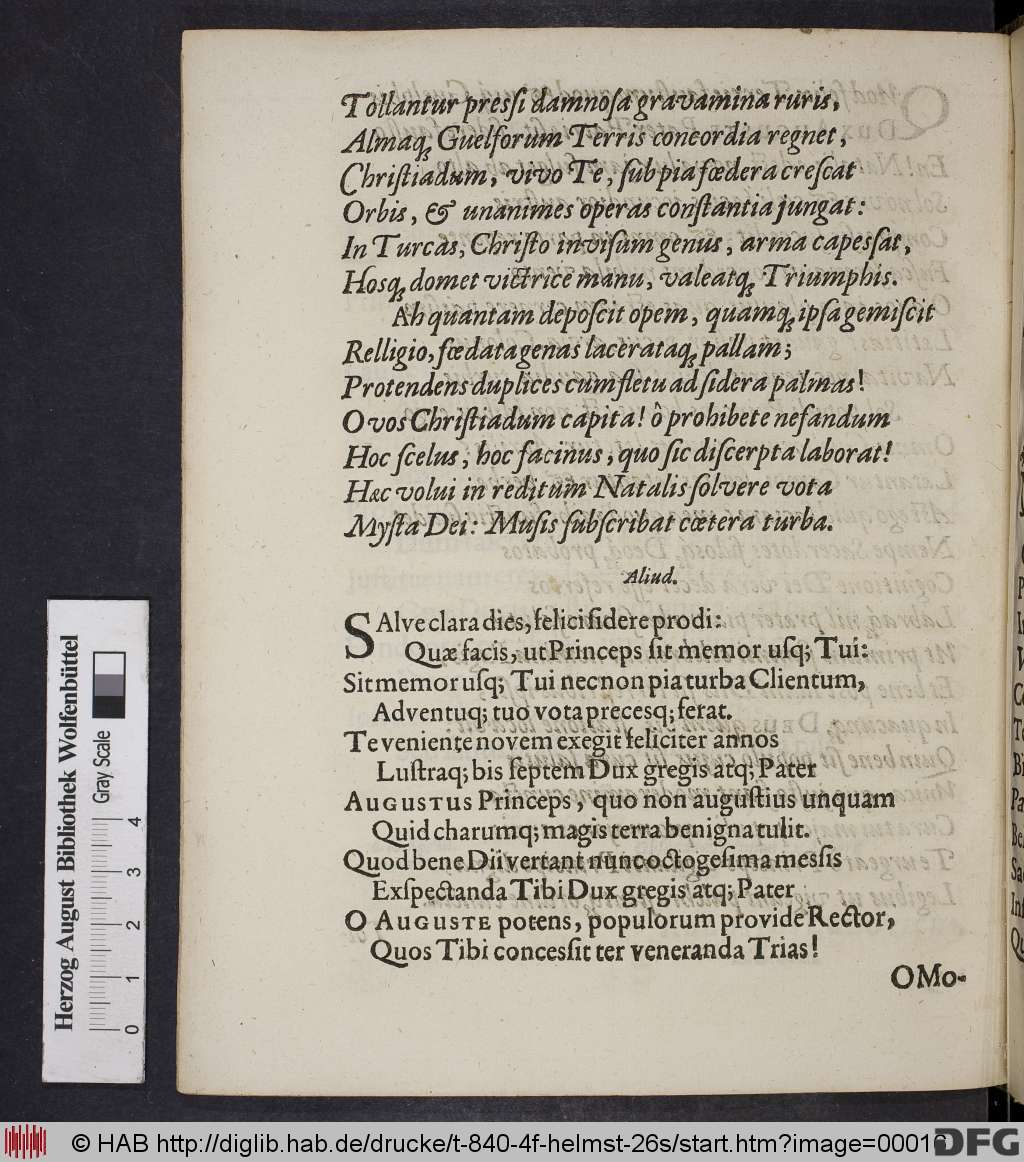 Tollantur pressi damnosa gravamina ruris,
Almaq; Guelforum Terris concordia regnet,
Christiadum, vivo Te, sub pia fœdera crescat
Orbis, & unanimes operas constantia jungat:
In Turcas, Christo invisum genus, arma capessat,
Hosq; domet victrice manu, valeatq; Triumphis.
Ah quantam deposcit opem, quamq; ipsa gemiscit
Relligio, fœdata genas lacerataq; pallam;
Protendens duplices cum fletu ad sidera palmas!
O vos Christiadum capita! ô prohibete nefandum
Hoc scelus, hoc facinus, quo sic discerpta laborat!
Hæc volui in reditum Natalis solvere vota
Mysta Dei: Musis subscribat cœtera turba.
Aliud.
SAlve clara dies, felici sidere prodi:
Quæ facis, ut Princeps sit memor usq; Tui:
Sit memor usq; Tui nec non pia turba Clientum,
Adventuq; tuo vota precesq; ferat.
Te veniente novem exegit feliciter annos
Lustraq; bis septem Dux gregis atq; Pater
AUGUSTUS Princeps, quo non augustius unquam
Quid charumq; magis terra benigna tulit.
Quod bene Dii vertant nunc octogesima messis
Exspectanda Tibi Dux gregis atq; Pater
O AUGUSTE potens, populorum provide Rector,
Quos Tibi concessit ter veneranda Trias!
O Mo-
Herzog August Bibliothek Wolfenbüttel
Gray Scale
0 1 2 3 4
© HAB http://diglib.hab.de/drucke/t-840-4f-helmst-26s/start.htm?image=00016
DFG